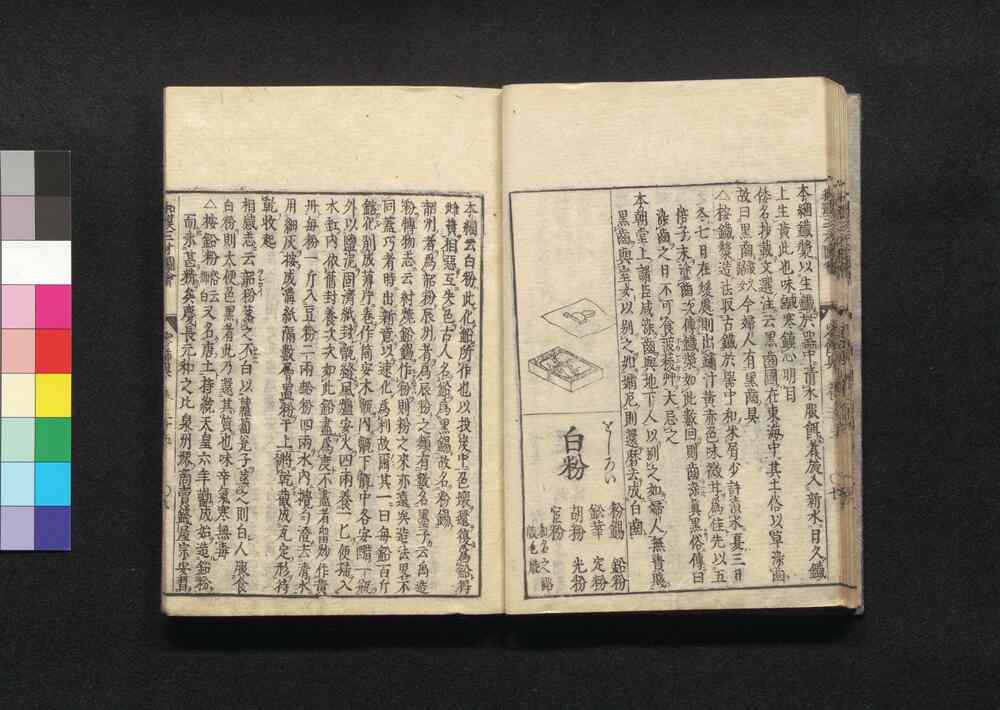 本綱鐵漿以生鐵於器中清水服餌者旋入新水日久鐵
上生黄此也味鹹寒鎮心明目
倭名抄載文選注云黒歯國在東海中其土俗以草染歯
故曰黒歯今婦人有黒歯具
△按鐵漿造法取古鐵於器中和米屑少許漬水夏三日
冬七日在煖處則出鏽汁黄赤色味微甘爲佳先以五
倍子末塗歯次傳鐵漿如此數回則歯染眞黒俗傳曰
染歯之日不可食菠薐艸大忌之
本朝堂上諸臣咸染歯與地下人以別之如婦人無貴賤
黒歯與室女以別之
白粉
をしろい
粉錫 鉛粉
鉛華 定粉
胡粉 光粉
官粉
本綱云白粉此化鉛所作也以投炭中色壞還復爲鉛得
雌黄相惡互失色古人名鉛爲黒錫故名粉錫
韶州者爲韶粉辰州者爲辰粉之類有數名墨子云禹造
粉博物志云紂燒鉛錫作粉則粉之來亦遠矣造法畧不
同蓋巧者時出新意以速化爲利故爾其一曰毎鉛百斤
鎔化削成薄片卷作筒安木甑内甑下甑中各安醋一瓶
外以鹽泥固濟紙封甑縫風爐安火四兩養一七便掃入
水缸内依舊封養次次如此鉛盡爲度不盡者留炒作黄
丹毎粉一斤入豆粉二兩蛤粉四兩水内攪匀澄去清水
用細灰按成溝紙隔數層置粉于上將乾截成瓦定形待
乾收起
相感志云韶粉蒸之不白以蘿蔔瓮子蒸之則白人服食
白粉則大便色黒者此乃還其質也味辛氣寒無毒
△按鉛粉 又名唐土持統天皇六年勅成始造鉛粉
而未甚精矣慶長元和之比泉州堺南